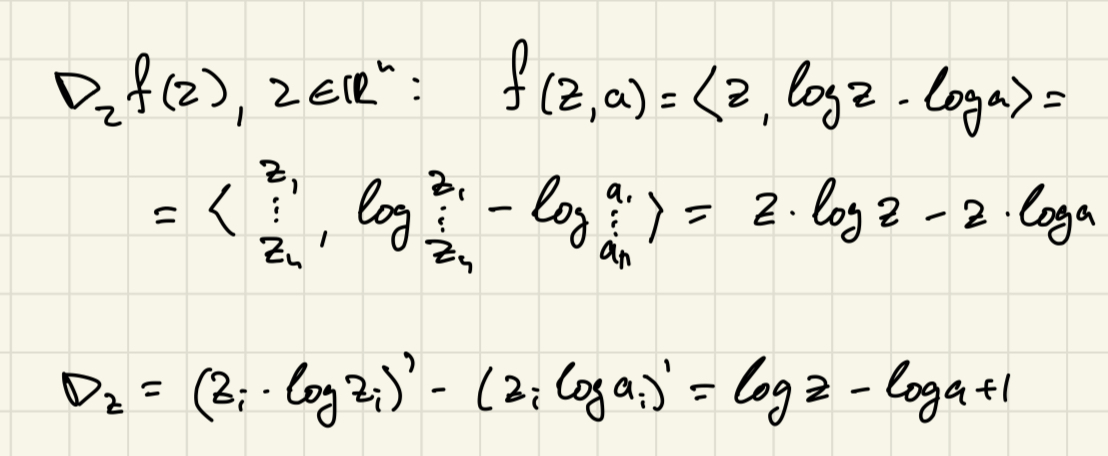 ∇_z f(z), z ∈ ℝⁿ: f(z, a) = ⟨z, log z - log a⟩ =
= ⟨z₁ ⋮ zₙ, log z₁ ⋮ zₙ - log a₁ ⋮ aₙ⟩ = z · log z - z · log a
∇_z = (zᵢ · log zᵢ)' - (zᵢ log aᵢ)' = log z - log a + 1